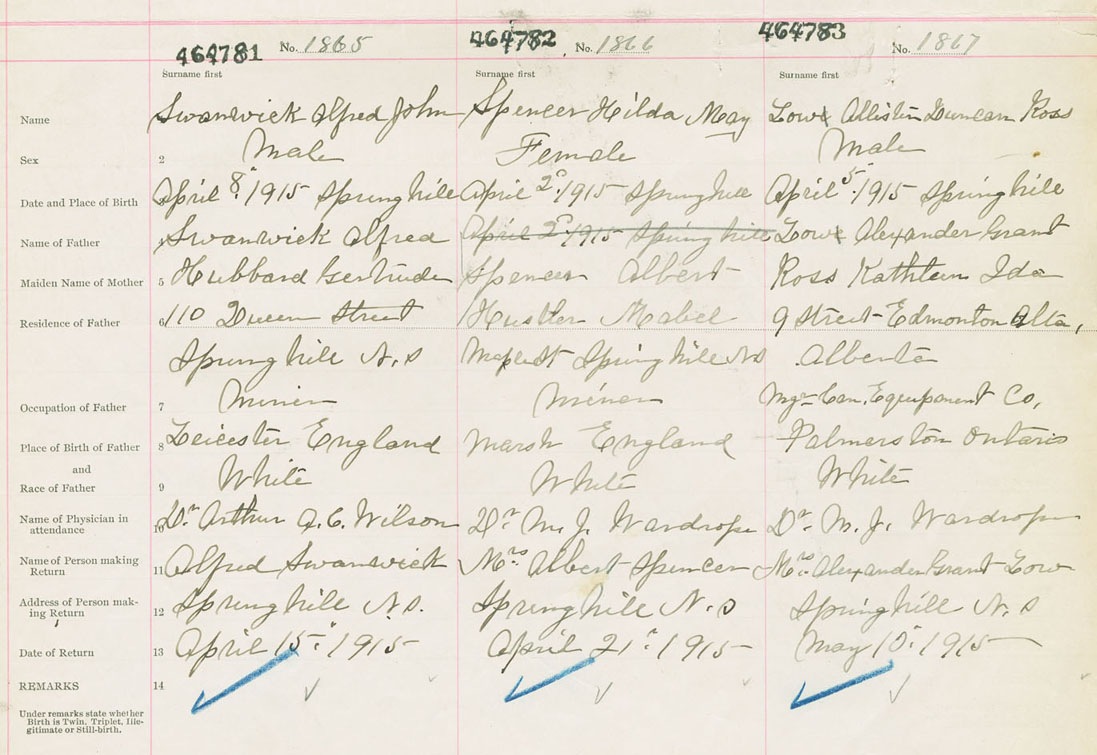 464781 No. 1865 464782 No. 1866 464783 No. 1867
Surname first Surname first Surname first
Name Swanwick Alfred John Spencer Hilda May Low Allistin Duncan Ross
Sex 2 Male Female Male
Date and Place of Birth April 8" 1915 Springhill April 2" 1915 Springhill April 5" 1915 Springhill
Name of Father 4 Swanwick Alfred April 2" 1915 Springhill Low Alexander Grant
Maiden Name of Mother 5 Hubbard Gertrude Spencer Albert Ross Kathleen Ida
Residence of Father 6 110 Queen Street Hustler Mabel 9 Street Edmonton Alta,
Springhill N.S Maple St Springhill NS Alberta
Occupation of Father 7 Miner Miner Mgr Can. Equipment Co,
Place of Birth of Father 8 Leicester England Marsh England Palmerston Ontario
and
Race of Father 9 White White White
Name of Physician in
attendance 10 Dr Arthur A.C. Wilson Dr M.J. Wardrope Dr M.J. Wardrope
Name of Person making
Return 11 Alfred Swanwick Mrs Albert Spencer Mrs Alexander Grant Low
Address of Person mak-
ing Return 12 Springhill N.S. Springhill N.S Springhill N.S
Date of Return 13 April 15" 1915 April 21" 1915 May 10" 1915
REMARKS 14
Under remarks state whether
Birth is Twin, Triplet, Ille-
gitimate or Still-birth.